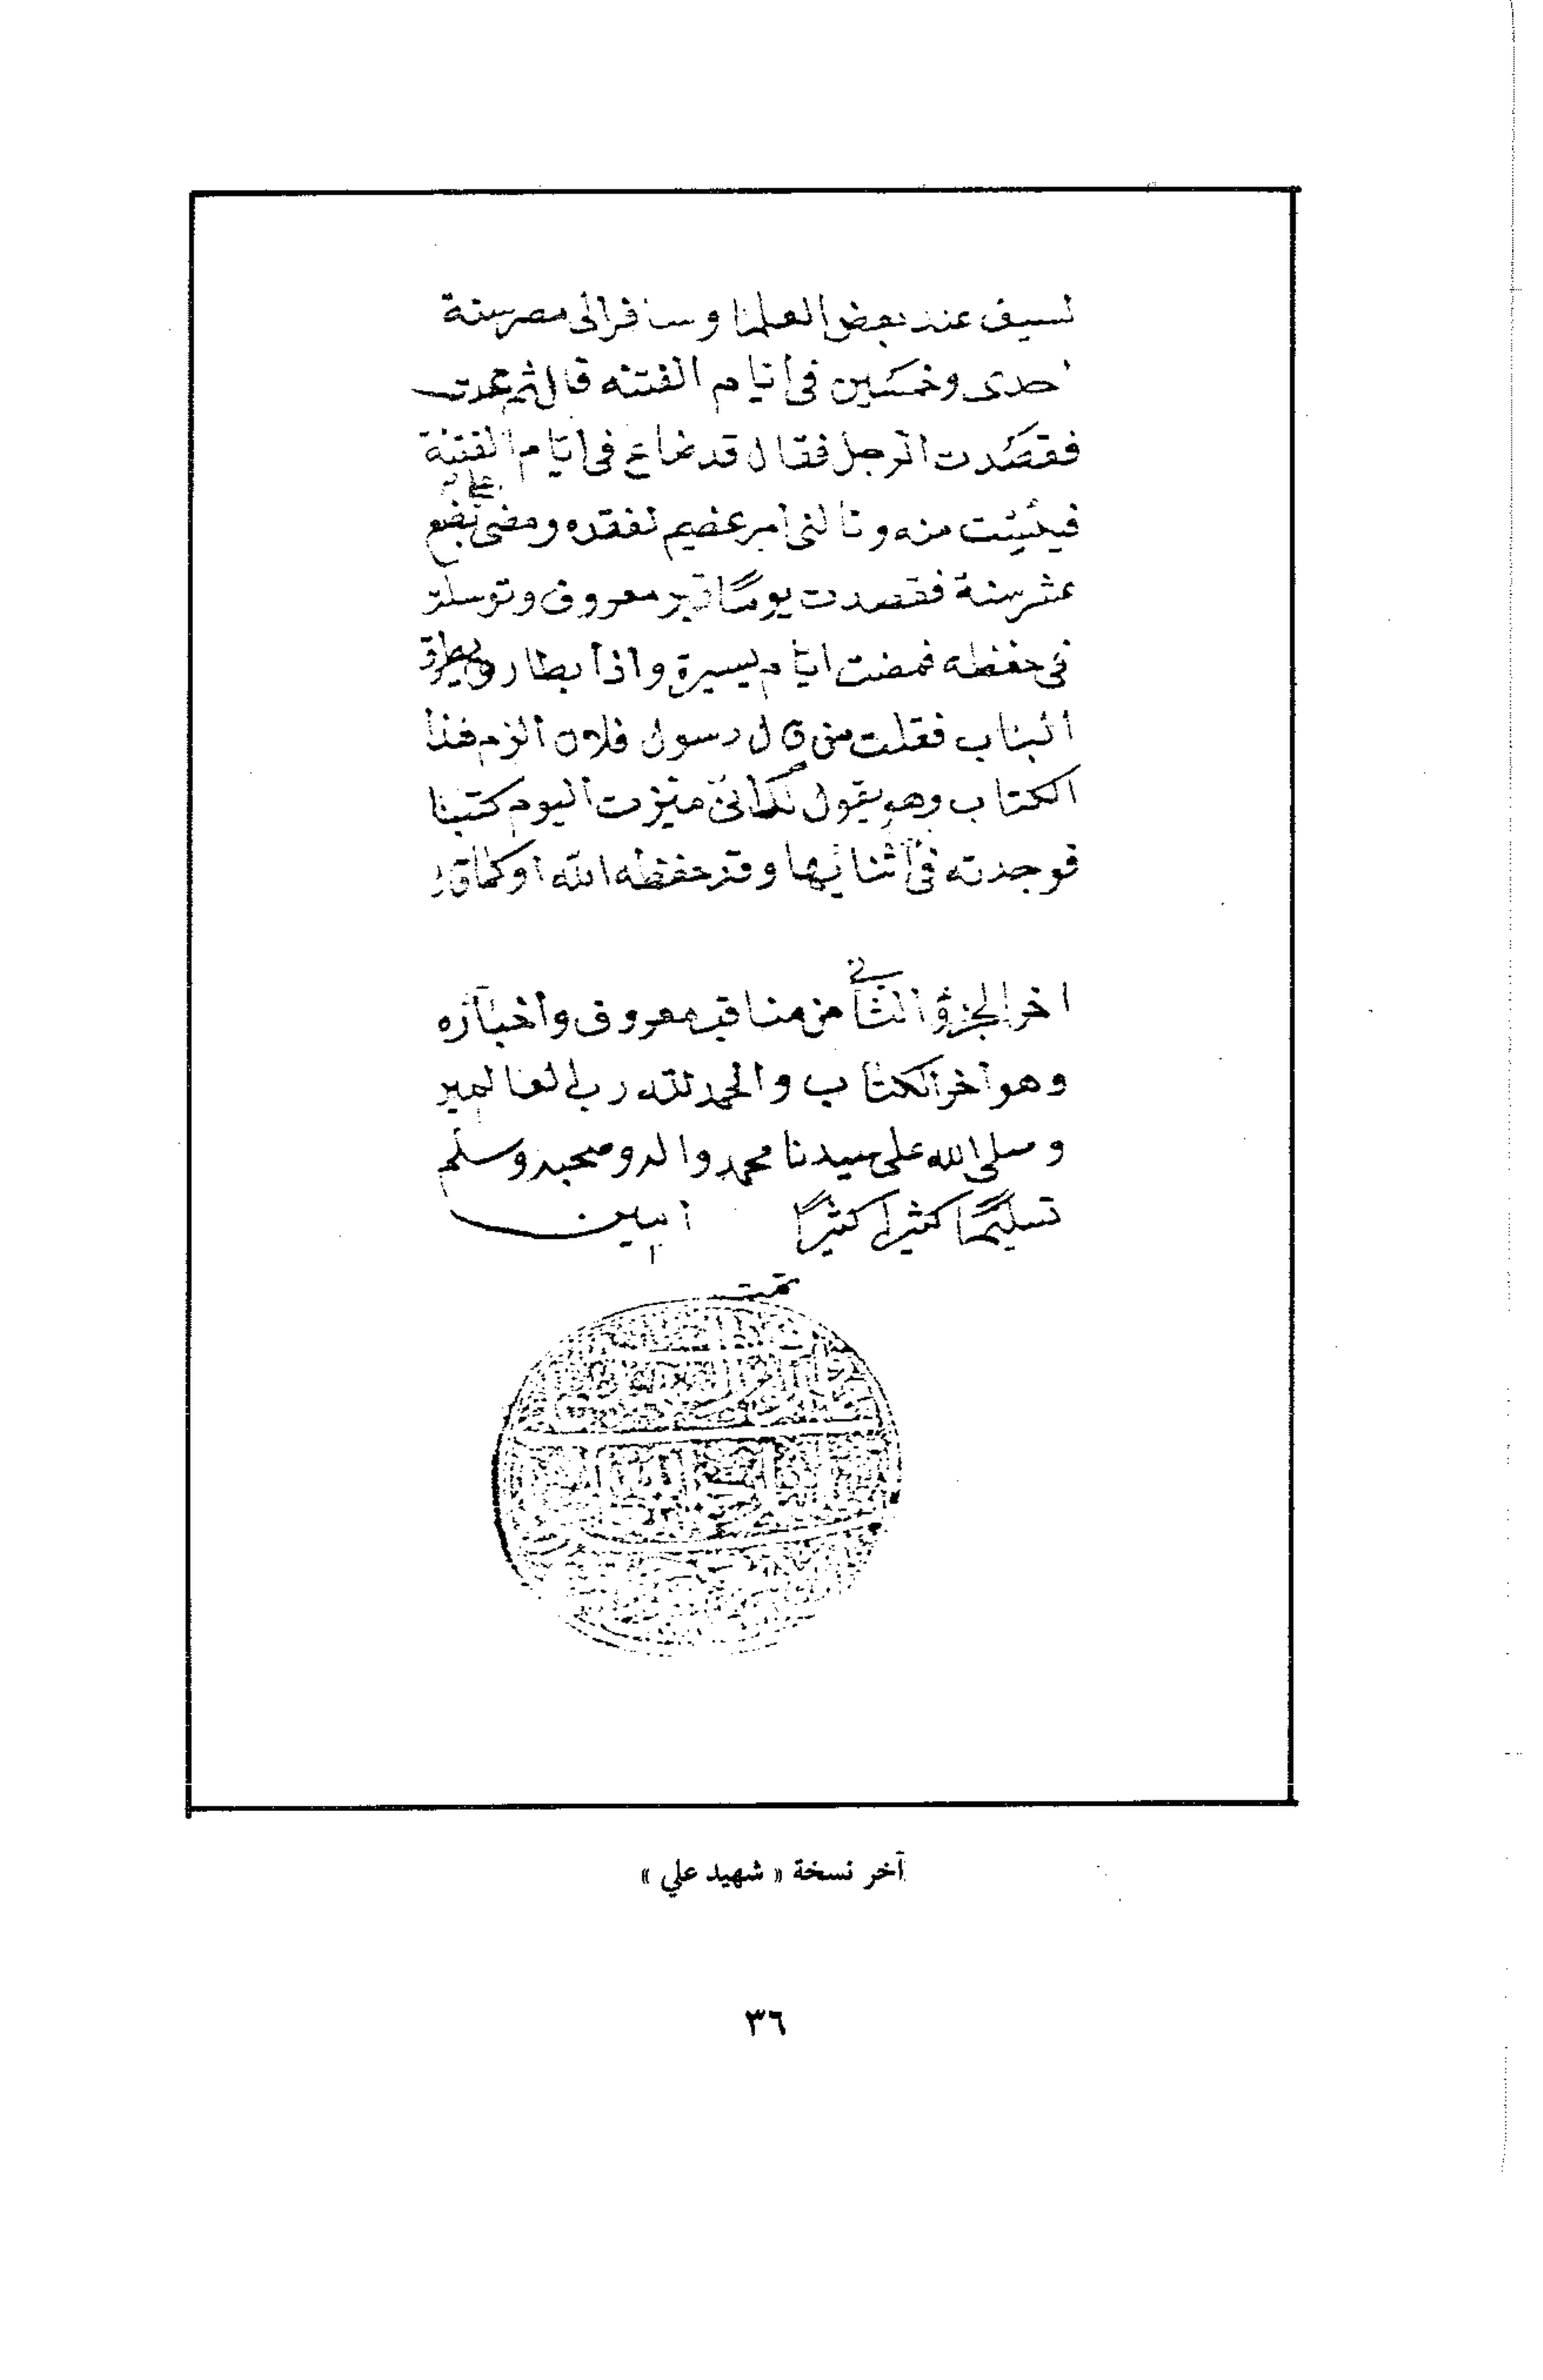 نسيف عند بعض العلما وسافر الى مصر سنة
احدى وخمسين في ايام الفتنه قال ثم عدت
فقصدت الرجل فقال قد ضاع في ايام الفتنة
فيئست منه ونالني امر عضيم لفقده ومضى على بضع
عشر سنة فقصدت يوماً قبر معروف وتوسلت
في حفظه فمضت ايام يسيرة واذا بطارق يطرق
الباب فقلت من قال رسول فلان الزم هذا
الكتاب وهو يقول لك انى ميزت اليوم كتبنا
فوجدته في اثنائها وقد حفظه الله او كما قال
اخر الجزؤ الثاني من مناقب معروف وأخباره
وهو آخر الكتاب والحمد لله رب العالمين
وصلى الله على سيدنا محمد واله وصحبه وسلم
تسليمًا كثيرا كثيرًا امين
تمت
آخر نسخة « شهيد علي »
٣٦